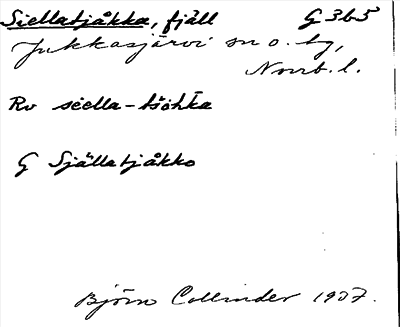 Siellatjåkka, fjäll G 365
Jukkasjärvi sn o. tg,
Norrb. l.
Rv siella-tšohka
G Själlatjåkko
Björn Collinder 1937.